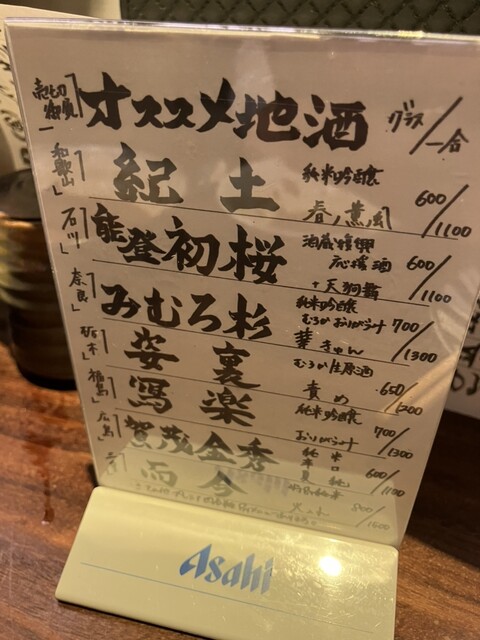 売切御免 オススメ地酒 グラス/一合
和歌山 紀土 純米吟醸 春ノ薫風 600/1100
石川 能登初桜 酒蔵復興応援酒 +天狗舞 600/1100
奈良 みむろ杉 純米吟醸 むろか おりがらみ 華きゅん 700/1300
栃木 姿 裏 むろか生原酒 責め 650/1200
福島 寫楽 純米吟醸 おりがらみ 700/1300
広島 賀茂金秀 純米 辛口 600/1100
而今 火入れ 800/1600
Asahi